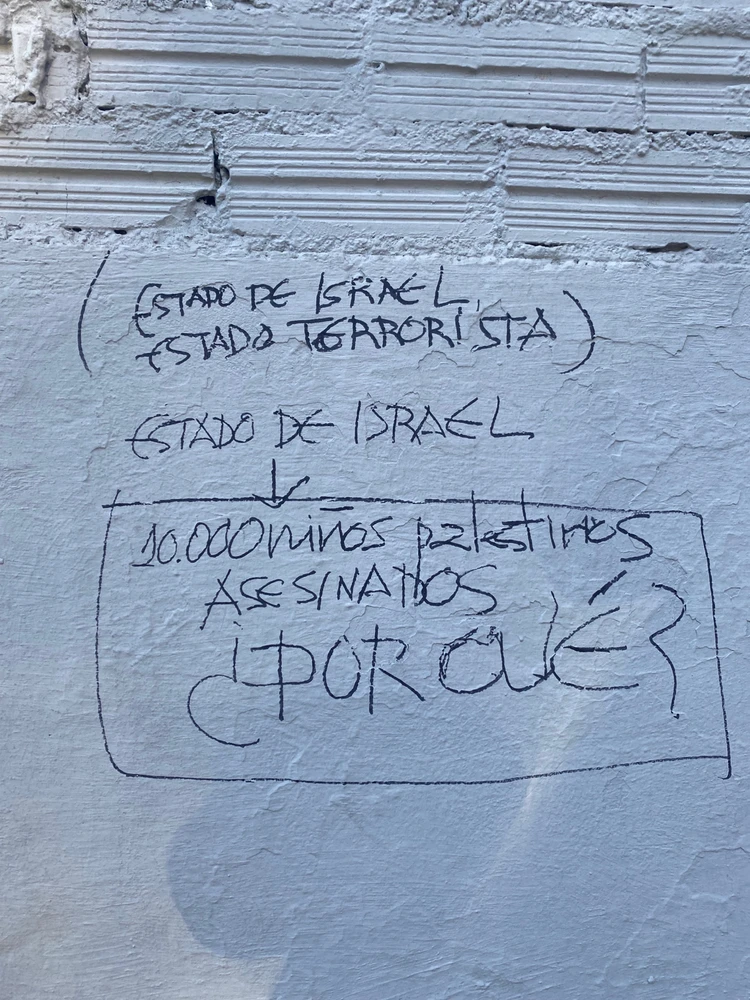 (ESTADO DE ISRAEL,
ESTADO TERRORISTA)
ESTADO DE ISRAEL
10.000 niños palestinos
ASESINADOS
¿POR QUÉ?